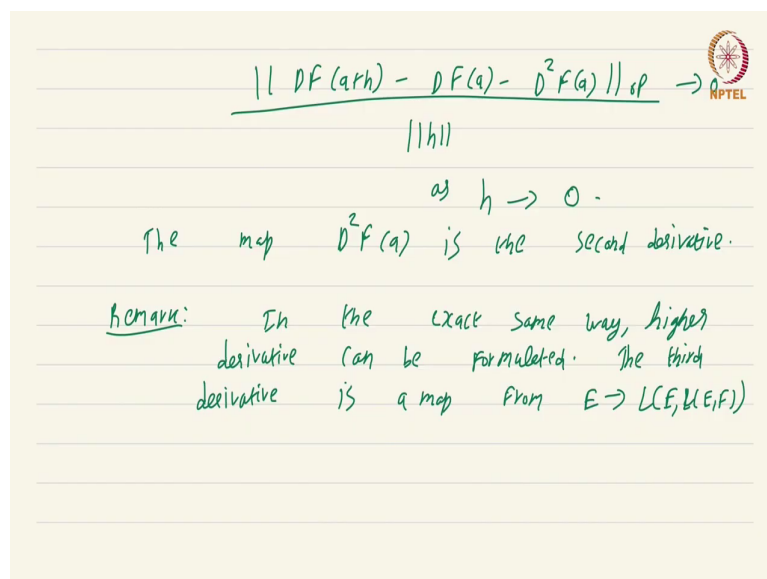 || DF(a+h) - DF(a) - D²F(a) ||op → 0
NPTEL
||h||
as h → 0.
The map D²F(a) is the second derivative.
Remark: In the exact same way, higher
derivative can be formulated. The third
derivative is a map from E → L(E, L(E, F))